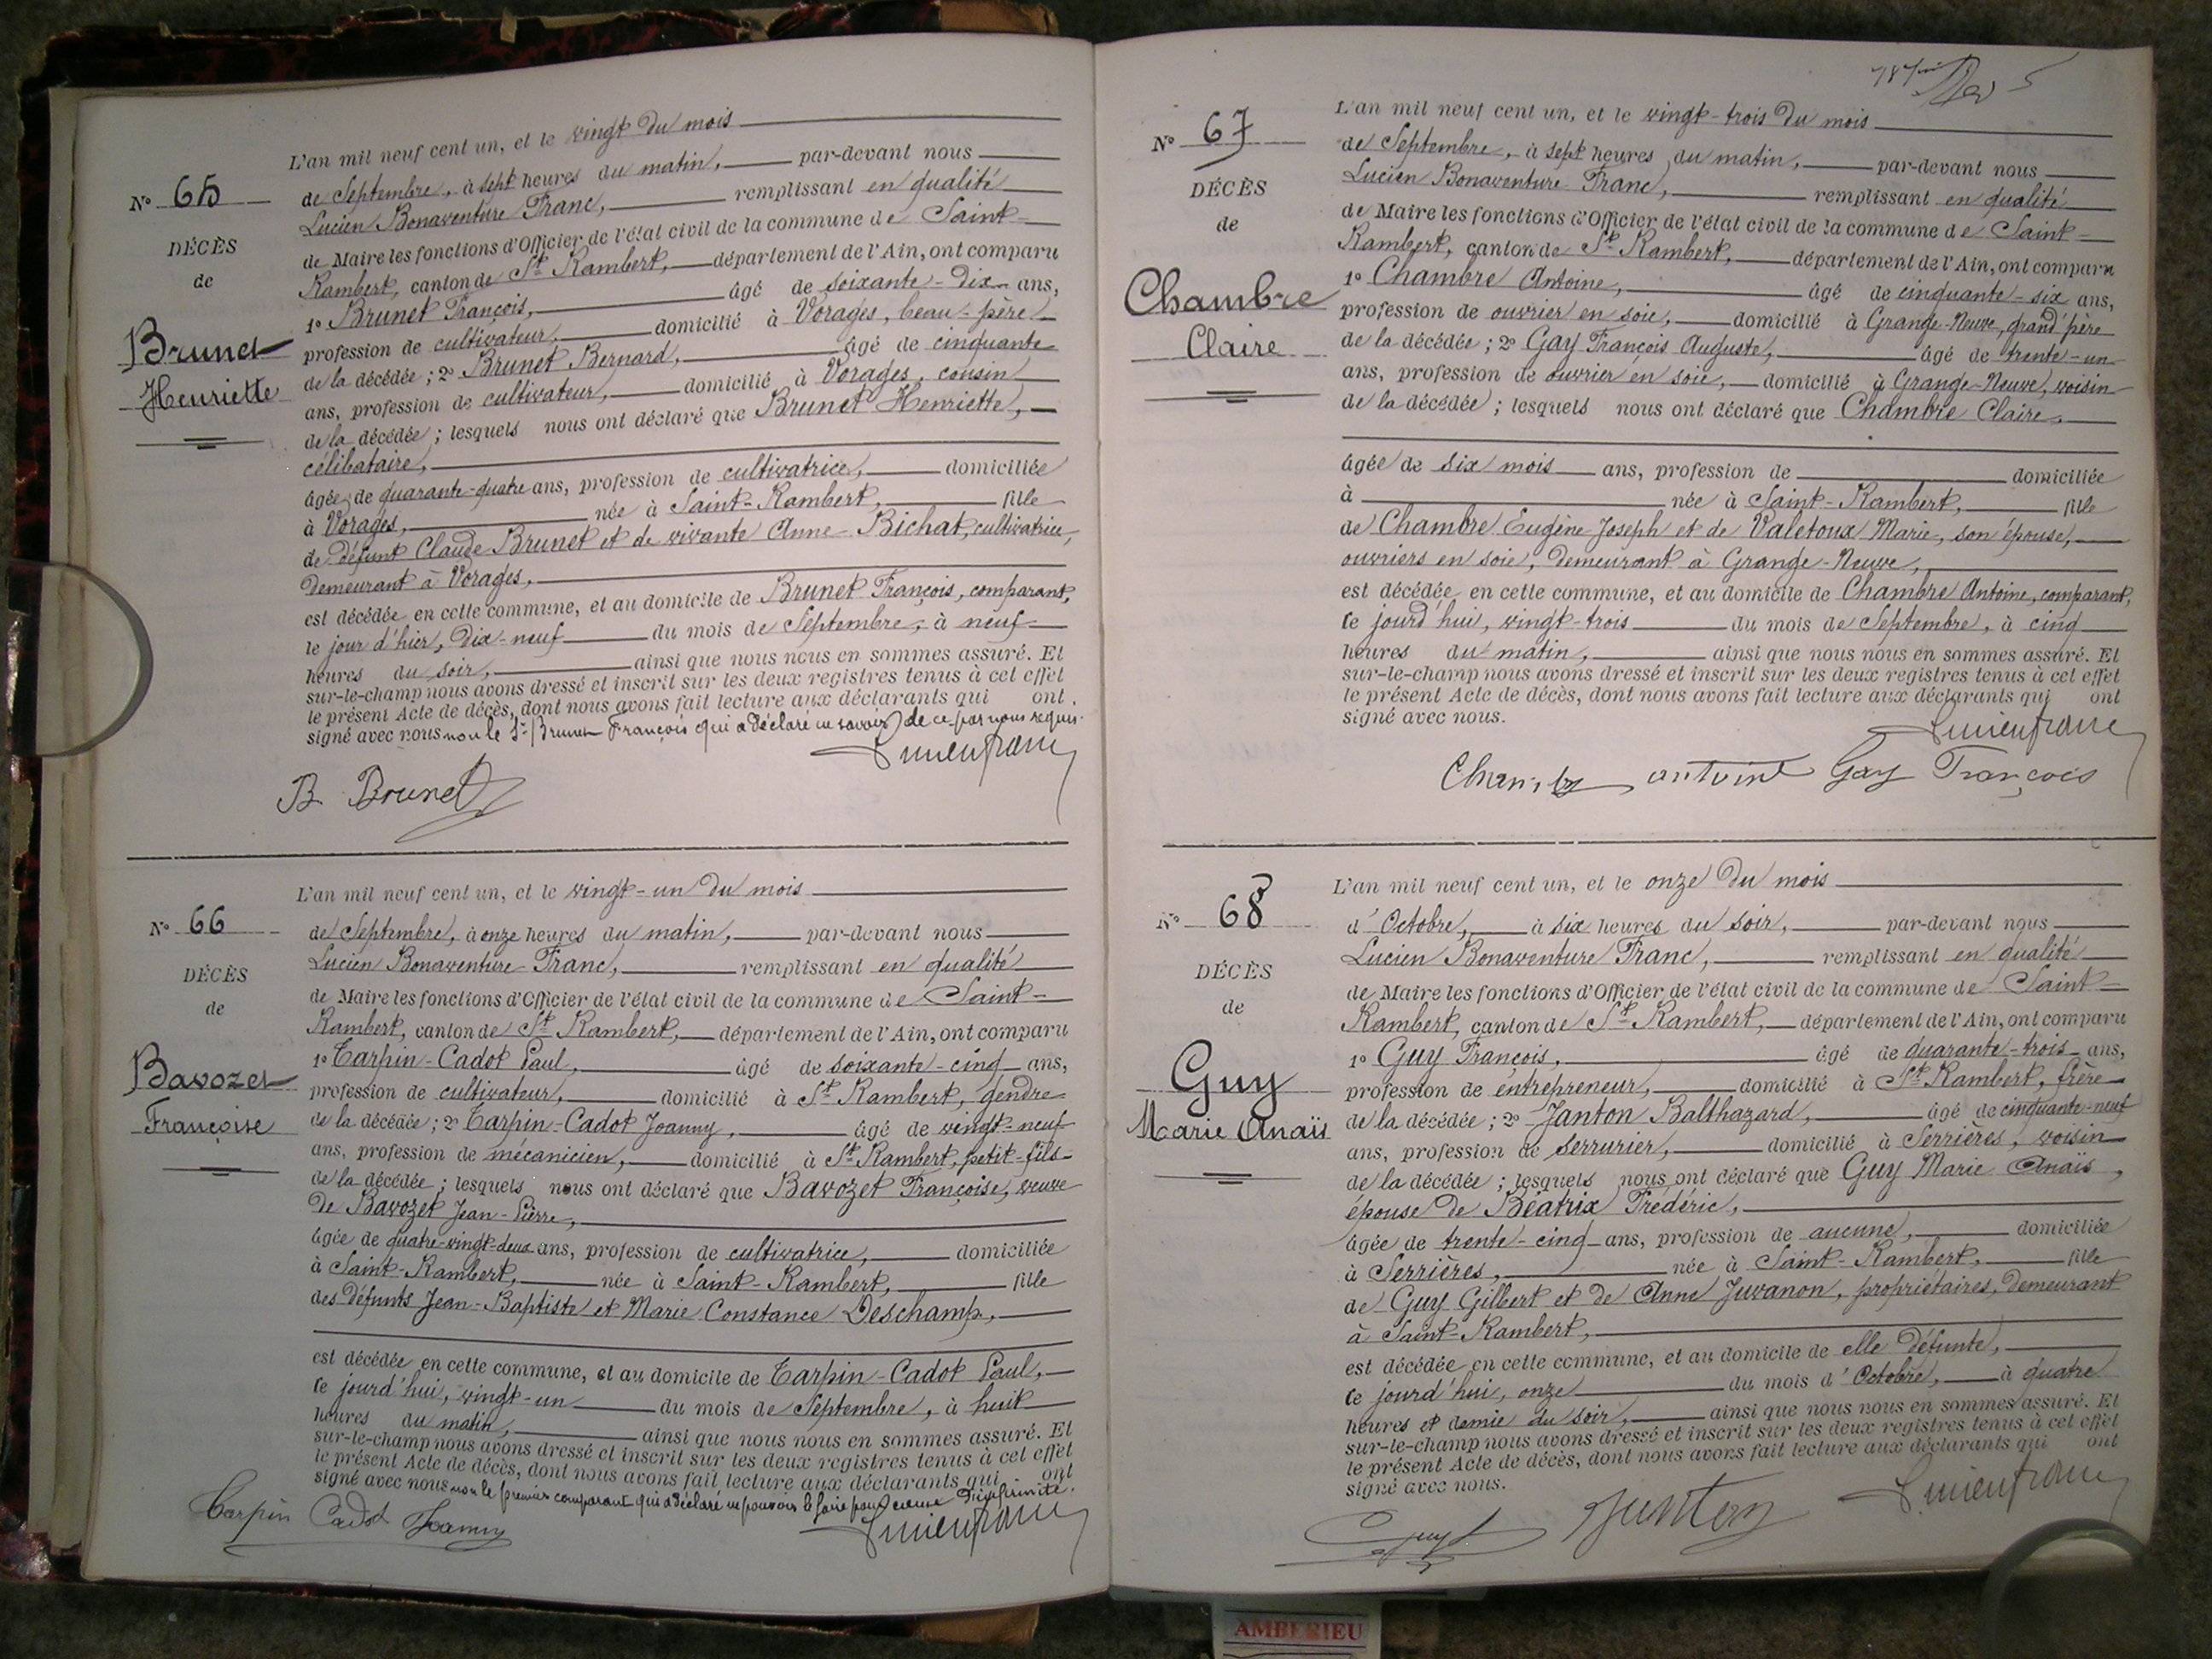 L'an mil neuf cent un, et le vingt du mois
N° 65
de Septembre, à sept heures du matin, par-devant nous
Lucien Bonaventure Franc, remplissant en qualité
DÉCÈS
de Maire les fonctions d'Officier de l'état civil de la commune de Saint-
de
Rambert, canton de St Rambert, département de l'Ain, ont comparu
1° Brunet François, âgé de soixante-dix ans,
Brunet
profession de cultivateur, domicilié à Vorages, beau-père
de la décédée ; 2° Brunet Bernard, âgé de cinquante
Henriette
ans, profession de cultivateur, domicilié à Vorages, cousin
de la décédée ; lesquels nous ont déclaré que Brunet Henriette,
célibataire,
âgée de quarante-quatre ans, profession de cultivatrice, domiciliée
à Vorages, née à Saint-Rambert, fille
de défunt Claude Brunet et de vivante Anne Bichat, cultivatrice,
demeurant à Vorages,
est décédée en cette commune, et au domicile de Brunet François, comparant,
le jour d'hier, dix-neuf du mois de Septembre, à neuf
heures du soir, ainsi que nous nous en sommes assuré. Et
sur-le-champ nous avons dressé et inscrit sur les deux registres tenus à cet effet
le présent Acte de décès, dont nous avons fait lecture aux déclarants qui ont
signé avec nous non le Sr Brunet François qui a déclaré ne savoir de ce par nous requis.
Lucien Franc
B Brunet
L'an mil neuf cent un, et le vingt-un du mois
N° 66
de Septembre, à onze heures du matin, par-devant nous
Lucien Bonaventure Franc, remplissant en qualité
DÉCÈS
de Maire les fonctions d'Officier de l'état civil de la commune de Saint-
de
Rambert, canton de St Rambert, département de l'Ain, ont comparu
1° Tarpin-Cadot Paul, âgé de soixante-cinq ans,
Bavozet
profession de cultivateur, domicilié à St Rambert, gendre
de la décédée ; 2° Tarpin-Cadot Joanny, âgé de vingt-neuf
Françoise
ans, profession de mécanicien, domicilié à St Rambert, petit-fils
de la décédée ; lesquels nous ont déclaré que Bavozet Françoise, veuve
de Bavozet Jean-Pierre,
âgée de quatre-vingt-deux ans, profession de cultivatrice, domiciliée
à Saint-Rambert, née à Saint-Rambert, fille
des défunts Jean-Baptiste et Marie Constance Deschamp,
est décédée en cette commune, et au domicile de Tarpin-Cadot Paul,
ce jourd'hui, vingt-un du mois de Septembre, à huit
heures du matin, ainsi que nous nous en sommes assuré. Et
sur-le-champ nous avons dressé et inscrit sur les deux registres tenus à cet effet
le présent Acte de décès, dont nous avons fait lecture aux déclarants qui ont
signé avec nous non le premier comparant qui a déclaré ne pouvoir le faire pour cause d'infirmité.
Tarpin Cadot Joanny
Lucien Franc
L'an mil neuf cent un, et le vingt-trois du mois
N° 67
de Septembre, à sept heures du matin, par-devant nous
Lucien Bonaventure Franc, remplissant en qualité
DÉCÈS
de Maire les fonctions d'Officier de l'état civil de la commune de Saint-
de
Rambert, canton de St Rambert, département de l'Ain, ont comparu
1° Chambre Antoine, âgé de cinquante-six ans,
Chambre
profession de ouvrier en soie, domicilié à Grange-Neuve, grand'père
Claire
de la décédée ; 2° Gay François Auguste, âgé de trente-un
ans, profession de ouvrier en soie, domicilié à Grange-Neuve, voisin
de la décédée ; lesquels nous ont déclaré que Chambre Claire,
âgée de six mois ans, profession de domiciliée
à née à Saint-Rambert, fille
de Chambre Eugène Joseph et de Valetoux Marie, son épouse,
ouvriers en soie, demeurant à Grange-Neuve,
est décédée en cette commune, et au domicile de Chambre Antoine, comparant,
ce jourd'hui, vingt-trois du mois de Septembre, à cinq
heures du matin, ainsi que nous nous en sommes assuré. Et
sur-le-champ nous avons dressé et inscrit sur les deux registres tenus à cet effet
le présent Acte de décès, dont nous avons fait lecture aux déclarants qui ont
signé avec nous.
Lucien Franc
antoine Gay François
L'an mil neuf cent un, et le onze du mois
N° 68
d'Octobre, à six heures du soir, par-devant nous
Lucien Bonaventure Franc, remplissant en qualité
DÉCÈS
de Maire les fonctions d'Officier de l'état civil de la commune de Saint-
de
Rambert, canton de St Rambert, département de l'Ain, ont comparu
1° Guy François, âgé de quarante-trois ans,
Guy
profession de entrepreneur, domicilié à St Rambert, frère
Marie Anaïs
de la décédée ; 2° Janton Balthazard, âgé de cinquante-neuf
ans, profession de serrurier, domicilié à Serrières, voisin
de la décédée ; lesquels nous ont déclaré que Guy Marie Anaïs,
épouse de Béatrix Frédéric,
âgée de trente-cinq ans, profession de aucune, domiciliée
à Serrières, née à Saint-Rambert, fille
de Guy Gilbert et de Anne Juvanon, propriétaires, demeurant
à Saint-Rambert,
est décédée en cette commune, et au domicile de elle défunte,
ce jourd'hui, onze du mois d'Octobre, à quatre
heures et demie du soir, ainsi que nous nous en sommes assuré. Et
sur-le-champ nous avons dressé et inscrit sur les deux registres tenus à cet effet
le présent Acte de décès, dont nous avons fait lecture aux déclarants qui ont
signé avec nous.
Guy Janton Lucien Franc
AMBERIEU